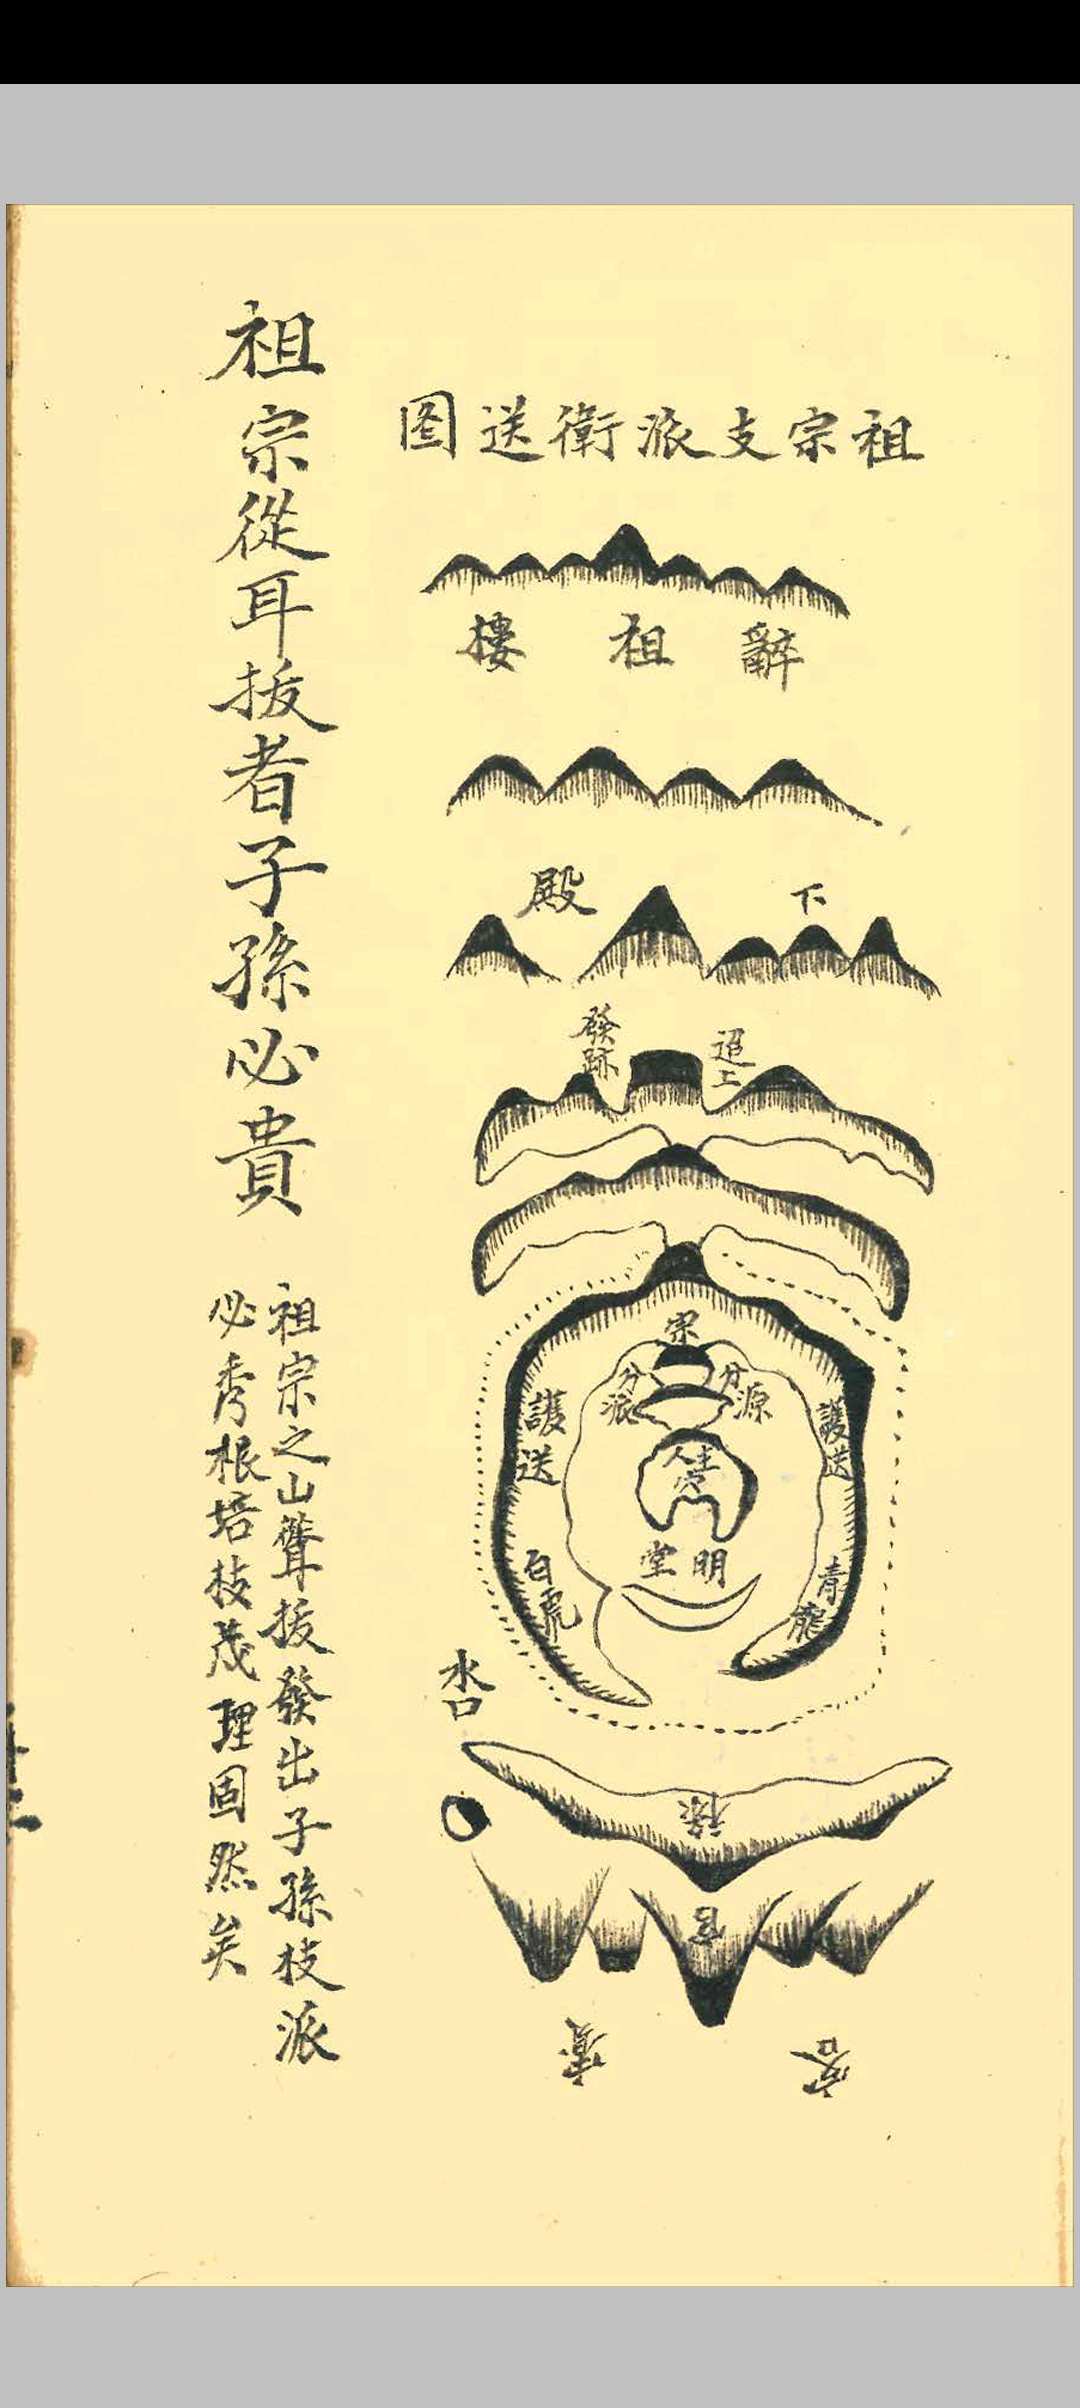 祖宗支派衛送图
辭祖樓
下殿
迢上
發跡
宗
分源
分派
護送
護送
主人
明堂
青龍
白虎
水口
祿
官
客
賓
祖宗從耳拔者子孫必貴
祖宗之山聳拔發出子孫枝派
必秀根培枝茂理固然矣